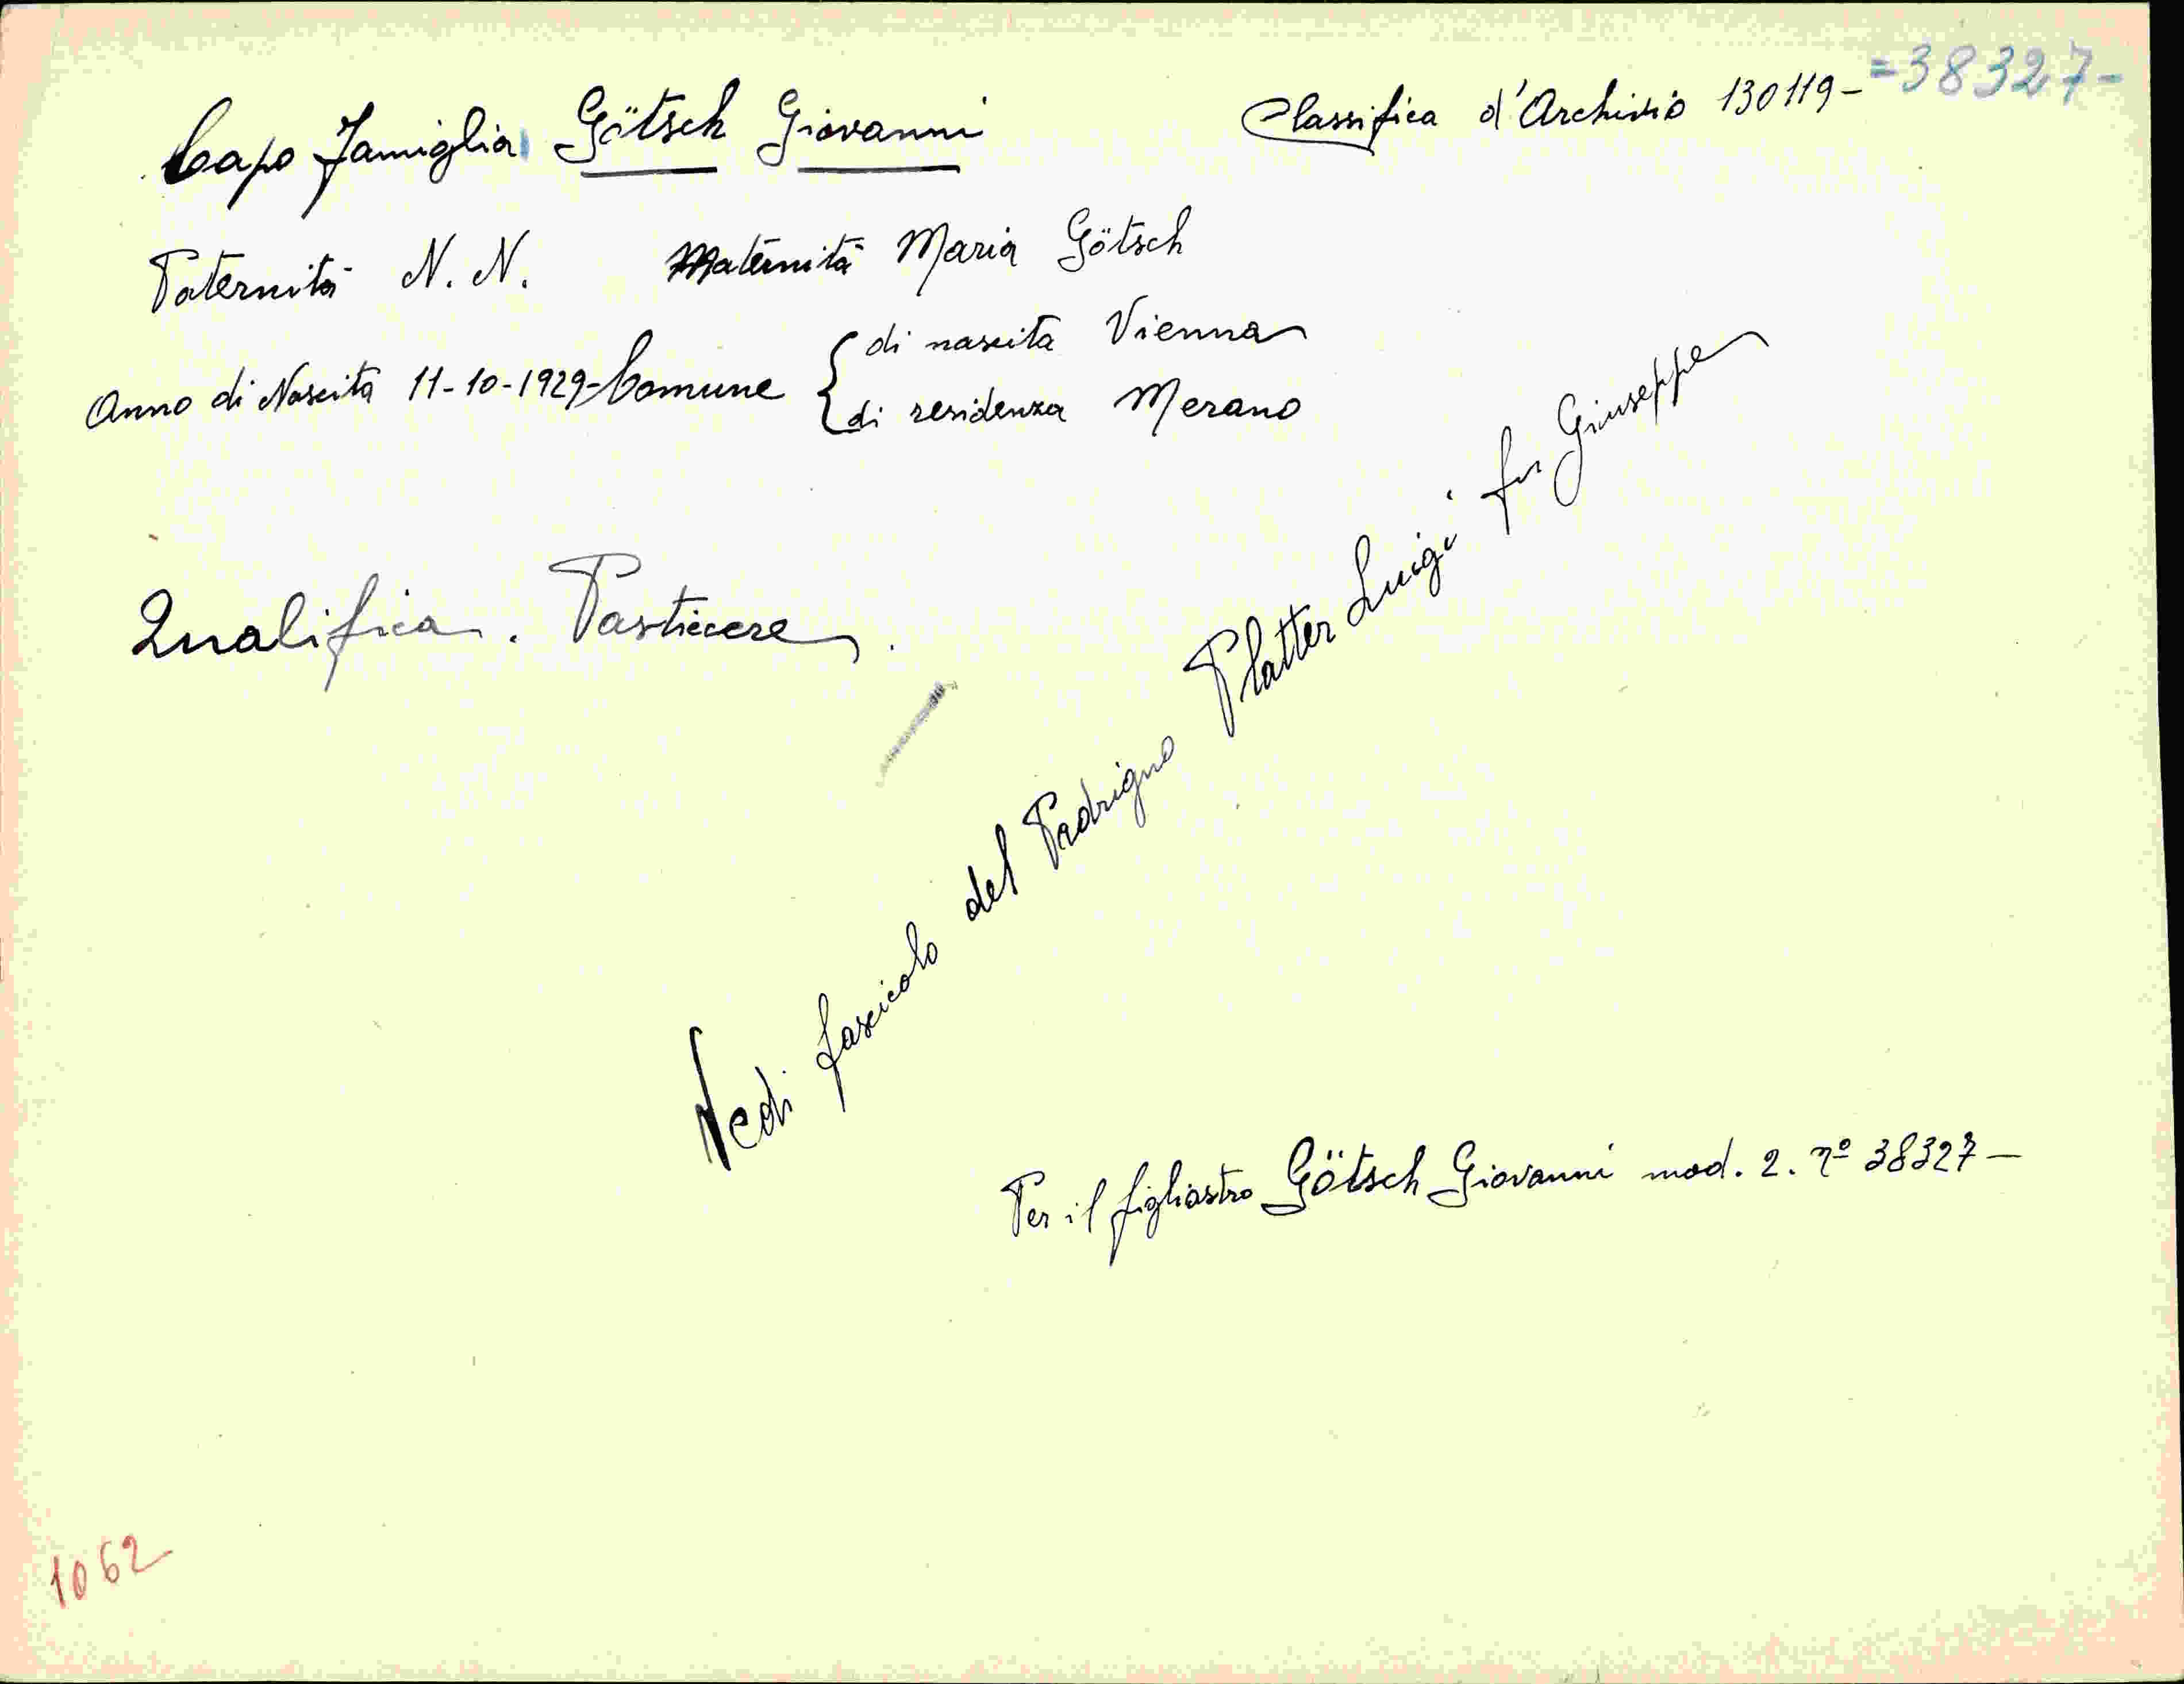 =38327-
Classifica d'Archivio 130119-
Capo Famiglia Götsch Giovanni
Paternità N.N. Maternità Maria Götsch
Anno di Nascita 11-10-1929- Comune { di nascita Vienna
di residenza Merano
Qualifica. Pasticcere.
Vedi fascicolo del Padrigno Platter Luigi fu Giuseppe
Per il figliastro Götsch Giovanni mod. 2. nº 38327-
1062